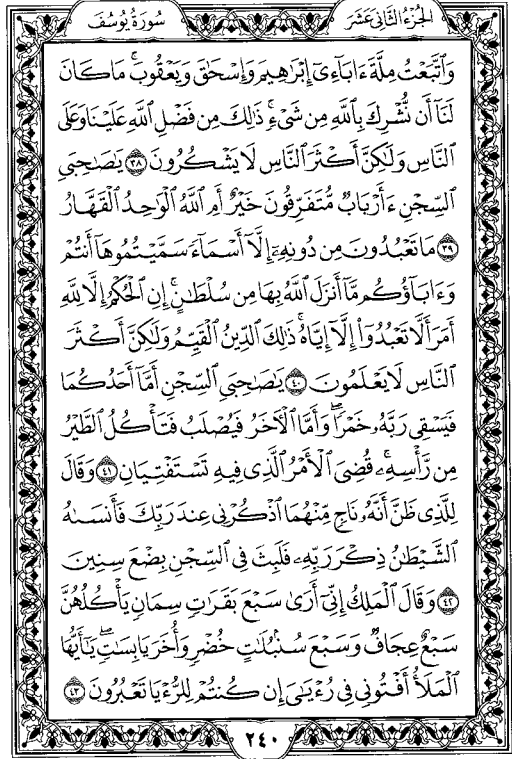 الجزء الثاني عشر
سورة يوسف
وَٱتَّبَعْتُ مِلَّةَ ءَابَآءِىٓ إِبْرَٰهِيمَ وَإِسْحَٰقَ وَيَعْقُوبَ ۚ مَا كَانَ
لَنَآ أَن نُّشْرِكَ بِٱللَّهِ مِن شَىْءٍ ۚ ذَٰلِكَ مِن فَضْلِ ٱللَّهِ عَلَيْنَا وَعَلَى
ٱلنَّاسِ وَلَٰكِنَّ أَكْثَرَ ٱلنَّاسِ لَا يَشْكُرُونَ ٣٨ يَٰصَىٰحِبَىِ
ٱلسِّجْنِ ءَأَرْبَابٌ مُّتَفَرِّقُونَ خَيْرٌ أَمِ ٱللَّهُ ٱلْوَٰحِدُ ٱلْقَهَّارُ
٣٩ مَا تَعْبُدُونَ مِن دُونِهِۦٓ إِلَّآ أَسْمَآءً سَمَّيْتُمُوهَآ أَنتُمْ
وَءَابَآؤُكُم مَّآ أَنزَلَ ٱللَّهُ بِهَا مِن سُلْطَٰنٍ ۚ إِنِ ٱلْحُكْمُ إِلَّا لِلَّهِ
أَمَرَ أَلَّا تَعْبُدُوٓا۟ إِلَّآ إِيَّاهُ ۚ ذَٰلِكَ ٱلدِّينُ ٱلْقَيِّمُ وَلَٰكِنَّ أَكْثَرَ
ٱلنَّاسِ لَا يَعْلَمُونَ ٤٠ يَٰصَىٰحِبَىِ ٱلسِّجْنِ أَمَّآ أَحَدُكُمَا
فَيَسْقِى رَبَّهُۥ خَمْرًا ۖ وَأَمَّا ٱلْءَاخَرُ فَيُصْلَبُ فَتَأْكُلُ ٱلطَّيْرُ
مِن رَّأْسِهِۦ ۚ قُضِىَ ٱلْأَمْرُ ٱلَّذِى فِيهِ تَسْتَفْتِيَانِ ٤١ وَقَالَ
لِلَّذِى ظَنَّ أَنَّهُۥ نَاجٍ مِّنْهُمَا ٱذْكُرْنِى عِندَ رَبِّكَ فَأَنسَىٰهُ
ٱلشَّيْطَٰنُ ذِكْرَ رَبِّهِۦ فَلَبِثَ فِى ٱلسِّجْنِ بِضْعَ سِنِينَ
٤٢ وَقَالَ ٱلْمَلِكُ إِنِّىٓ أَرَىٰ سَبْعَ بَقَرَٰتٍ سِمَانٍ يَأْكُلُهُنَّ
سَبْعٌ عِجَافٌ وَسَبْعَ سُنۢبُلَٰتٍ خُضْرٍ وَأُخَرَ يَابِسَٰتٍ ۖ يَٰٓأَيُّهَا
ٱلْمَلَأُ أَفْتُونِى فِى رُءْيَٰىَ إِن كُنتُمْ لِلرُّءْيَا تَعْبُرُونَ ٤٣
٢٤٠